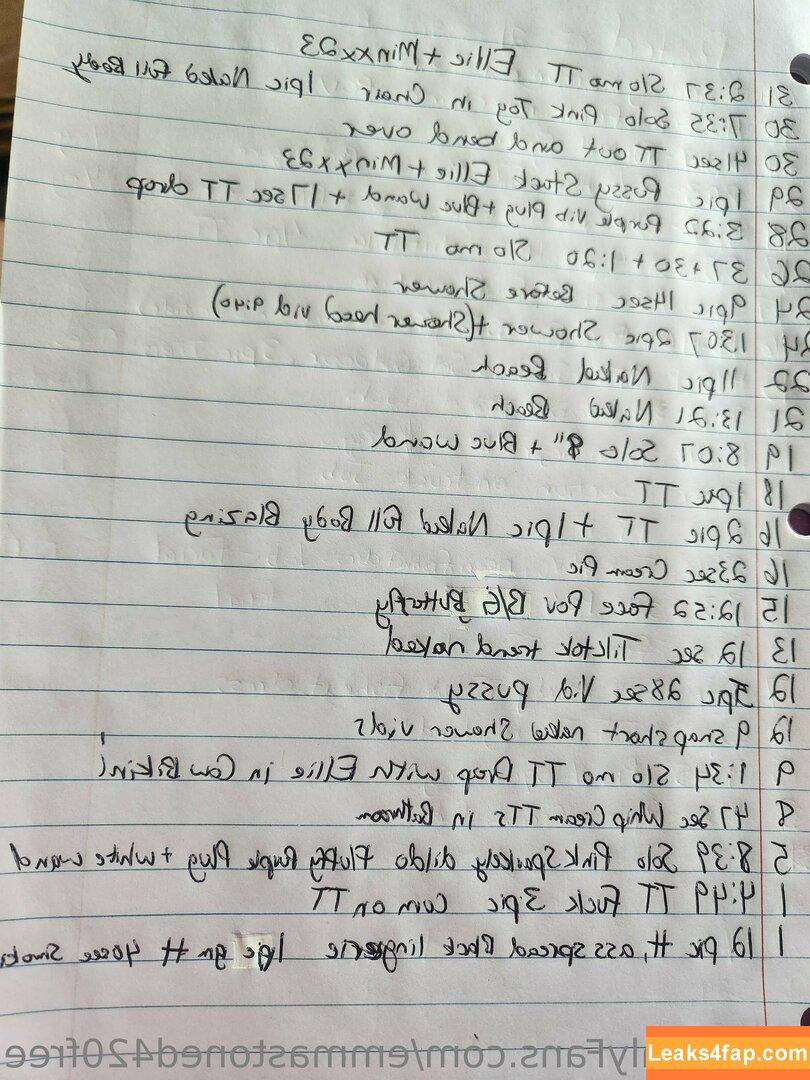 31 2:37 Slo mo TT Ellie + Minxx23
30 7:35 Solo Pink Toy in Chair 1pic Naked Full Body
30 41sec TT out and bend over
29 1pic Pussy Stack Ellie + Minxx23
28 3:22 Purple Vib Plug + Blue Wand + 17sec TT drop
26 37 + 30 + 1:20 Slo mo TT
24 9pic 14sec Before Shower
24 1307 2pic Shower + (Shower head vid 9:40)
22 11pic Naked Beach
21 13:21 Naked Beach
19 8:07 Solo 8" + Blue wand
18 1pic TT
16 2pic TT + 1pic Naked Full Body Blazing
16 23sec Cream Pie
15 12:52 Face Pov B/G Butterfly
13 12 sec Tiktok trend naked
12 3pic 28sec Vid pussy
12 9 snap short naked Shower vids
9 1:34 Slo mo TT Drop with Ellie in Cow Bikini
8 47 Sec Whip Cream TTs in Bathroom
5 8:39 Solo Pink Sparkely dildo Fluffy Purple Plug + white wand
1 4:49 TT Fuck 3pic Cum on TT
1 12 pic #, ass spread Black lingerie 1pic gn # 40sec
lyFans.com/emmastoned420free
Leaks4fap.com